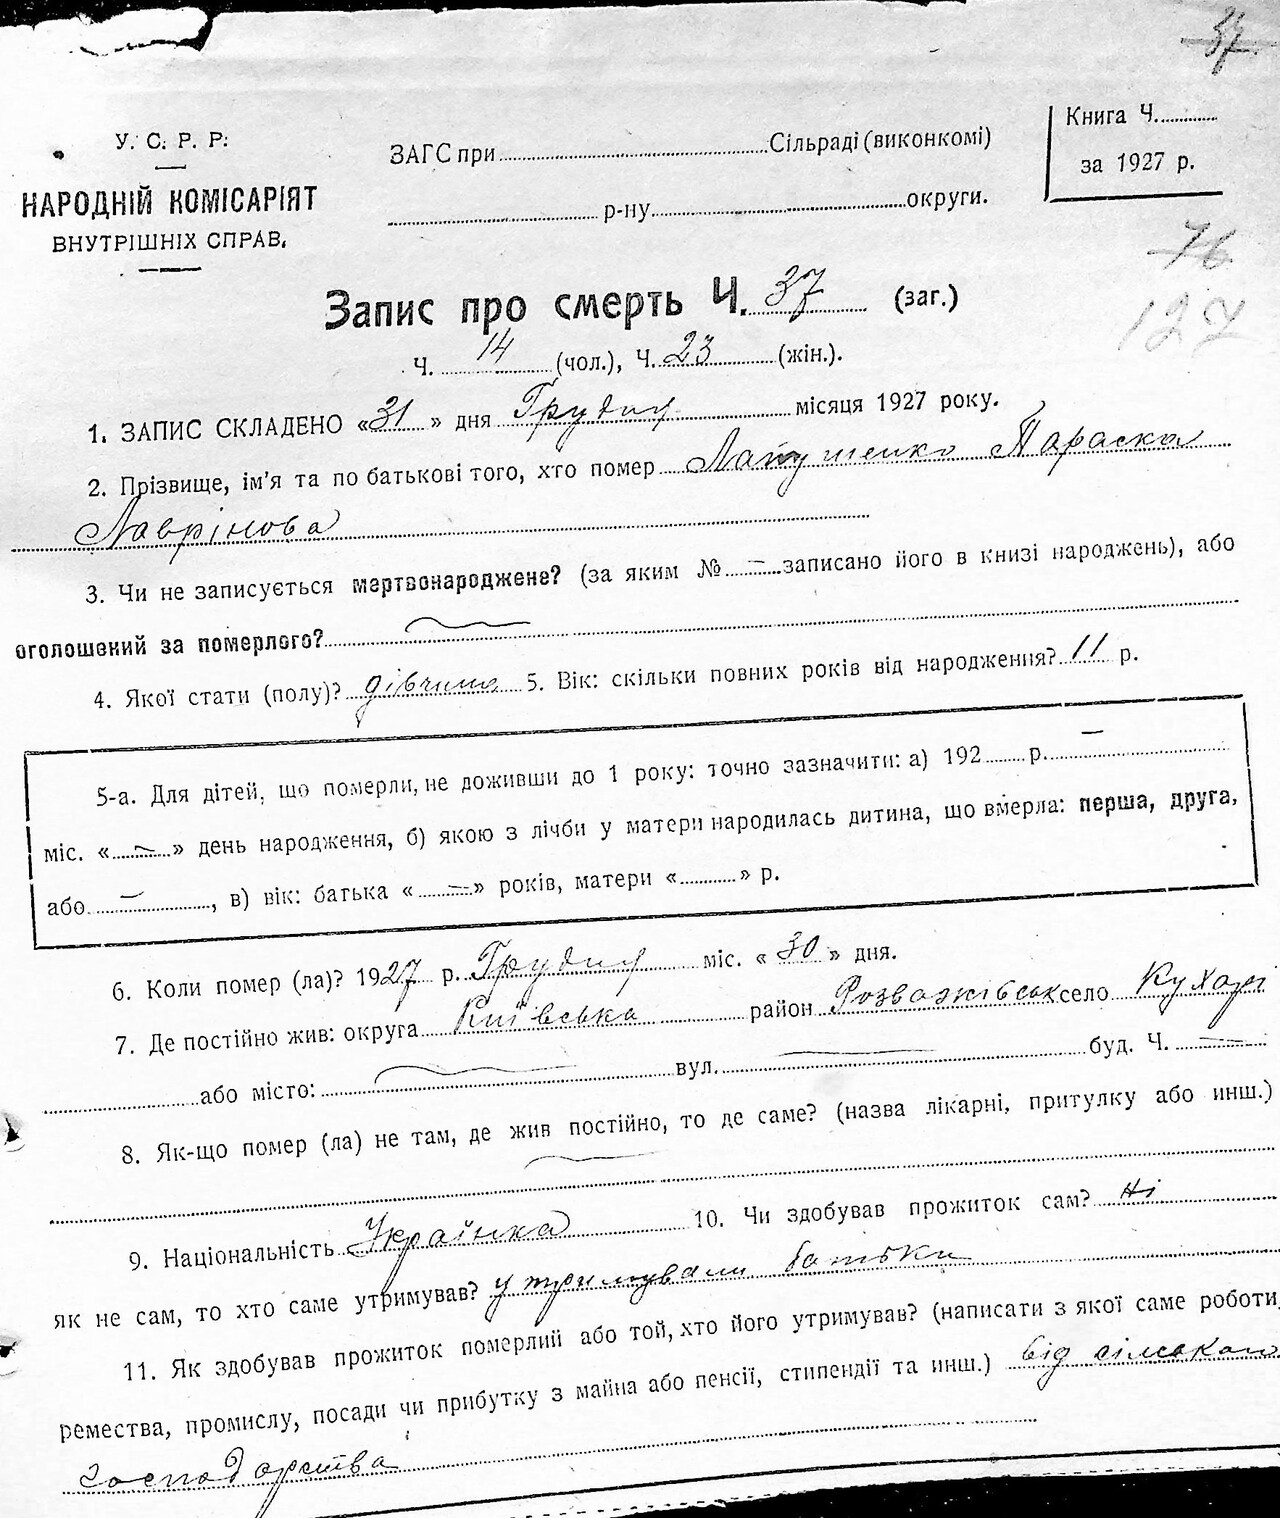 37
У. С. Р. Р.
НАРОДНІЙ КОМІСАРІЯТ
ВНУТРІШНІХ СПРАВ.
ЗАГС при Сільраді (виконкомі)
р-ну округи.
Книга Ч.
за 1927 р.
76
127
Запис про смерть Ч. 37 (заг.)
Ч. 14 (чол.), Ч. 23 (жін.).
1. ЗАПИС СКЛАДЕНО «31» дня Грудня місяця 1927 року.
2. Прізвище, ім'я та по батькові того, хто помер Параска
Лаврінова
3. Чи не записується мертвонароджене? (за яким № — записано його в книзі народжень), або
оголошений за померлого?
4. Якої стати (полу)? дівчина 5. Вік: скільки повних років від народження? 11 р.
5-а. Для дітей, що померли, не доживши до 1 року: точно зазначити: а) 192 р. —
міс. «—» день народження, б) якою з лічби у матери народилась дитина, що вмерла: перша, друга,
або —, в) вік: батька «—» років, матери « » р.
6. Коли помер (ла)? 1927 р. Грудня міс. «30» дня.
7. Де постійно жив: округа Київська район Розважівськ село Кухарі
або місто: вул. буд. Ч. —
8. Як-що помер (ла) не там, де жив постійно, то де саме? (назва лікарні, притулку або инш.)
9. Національність Українка 10. Чи здобував прожиток сам? Ні
як не сам, то хто саме утримував? утримували батьки
11. Як здобував прожиток померлий або той, хто його утримував? (написати з якої саме роботи,
ремества, промислу, посади чи прибутку з майна або пенсії, стипендії та инш.) від сільського
господарства